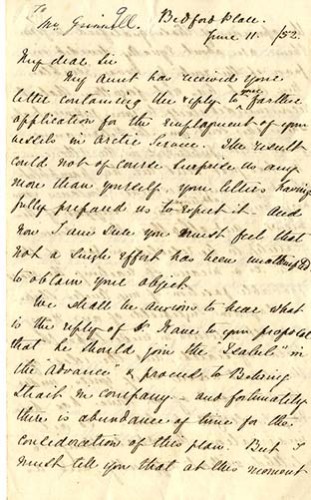 To
Mr Grinnell. Bedford Place.
June 11. /52.
My dear Sir
My Aunt has received your
letter containing the reply to your farther
application for the employment of your
vessels in Arctic Service. The result
could not of course surprise us any
more than yourself, your letters having
fully prepared us to expect it. And
now I am sure you must feel that
not a single effort has been unattempted
to obtain your object.
We shall be anxious to hear what
is the reply of Dr Kane to your proposal
that he should join the "Isabel" in
the "Advance" & proceed to Behring
Strait in company - and fortunately
there is abundance of time for the
consideration of this plan. But I
must tell you that at this moment